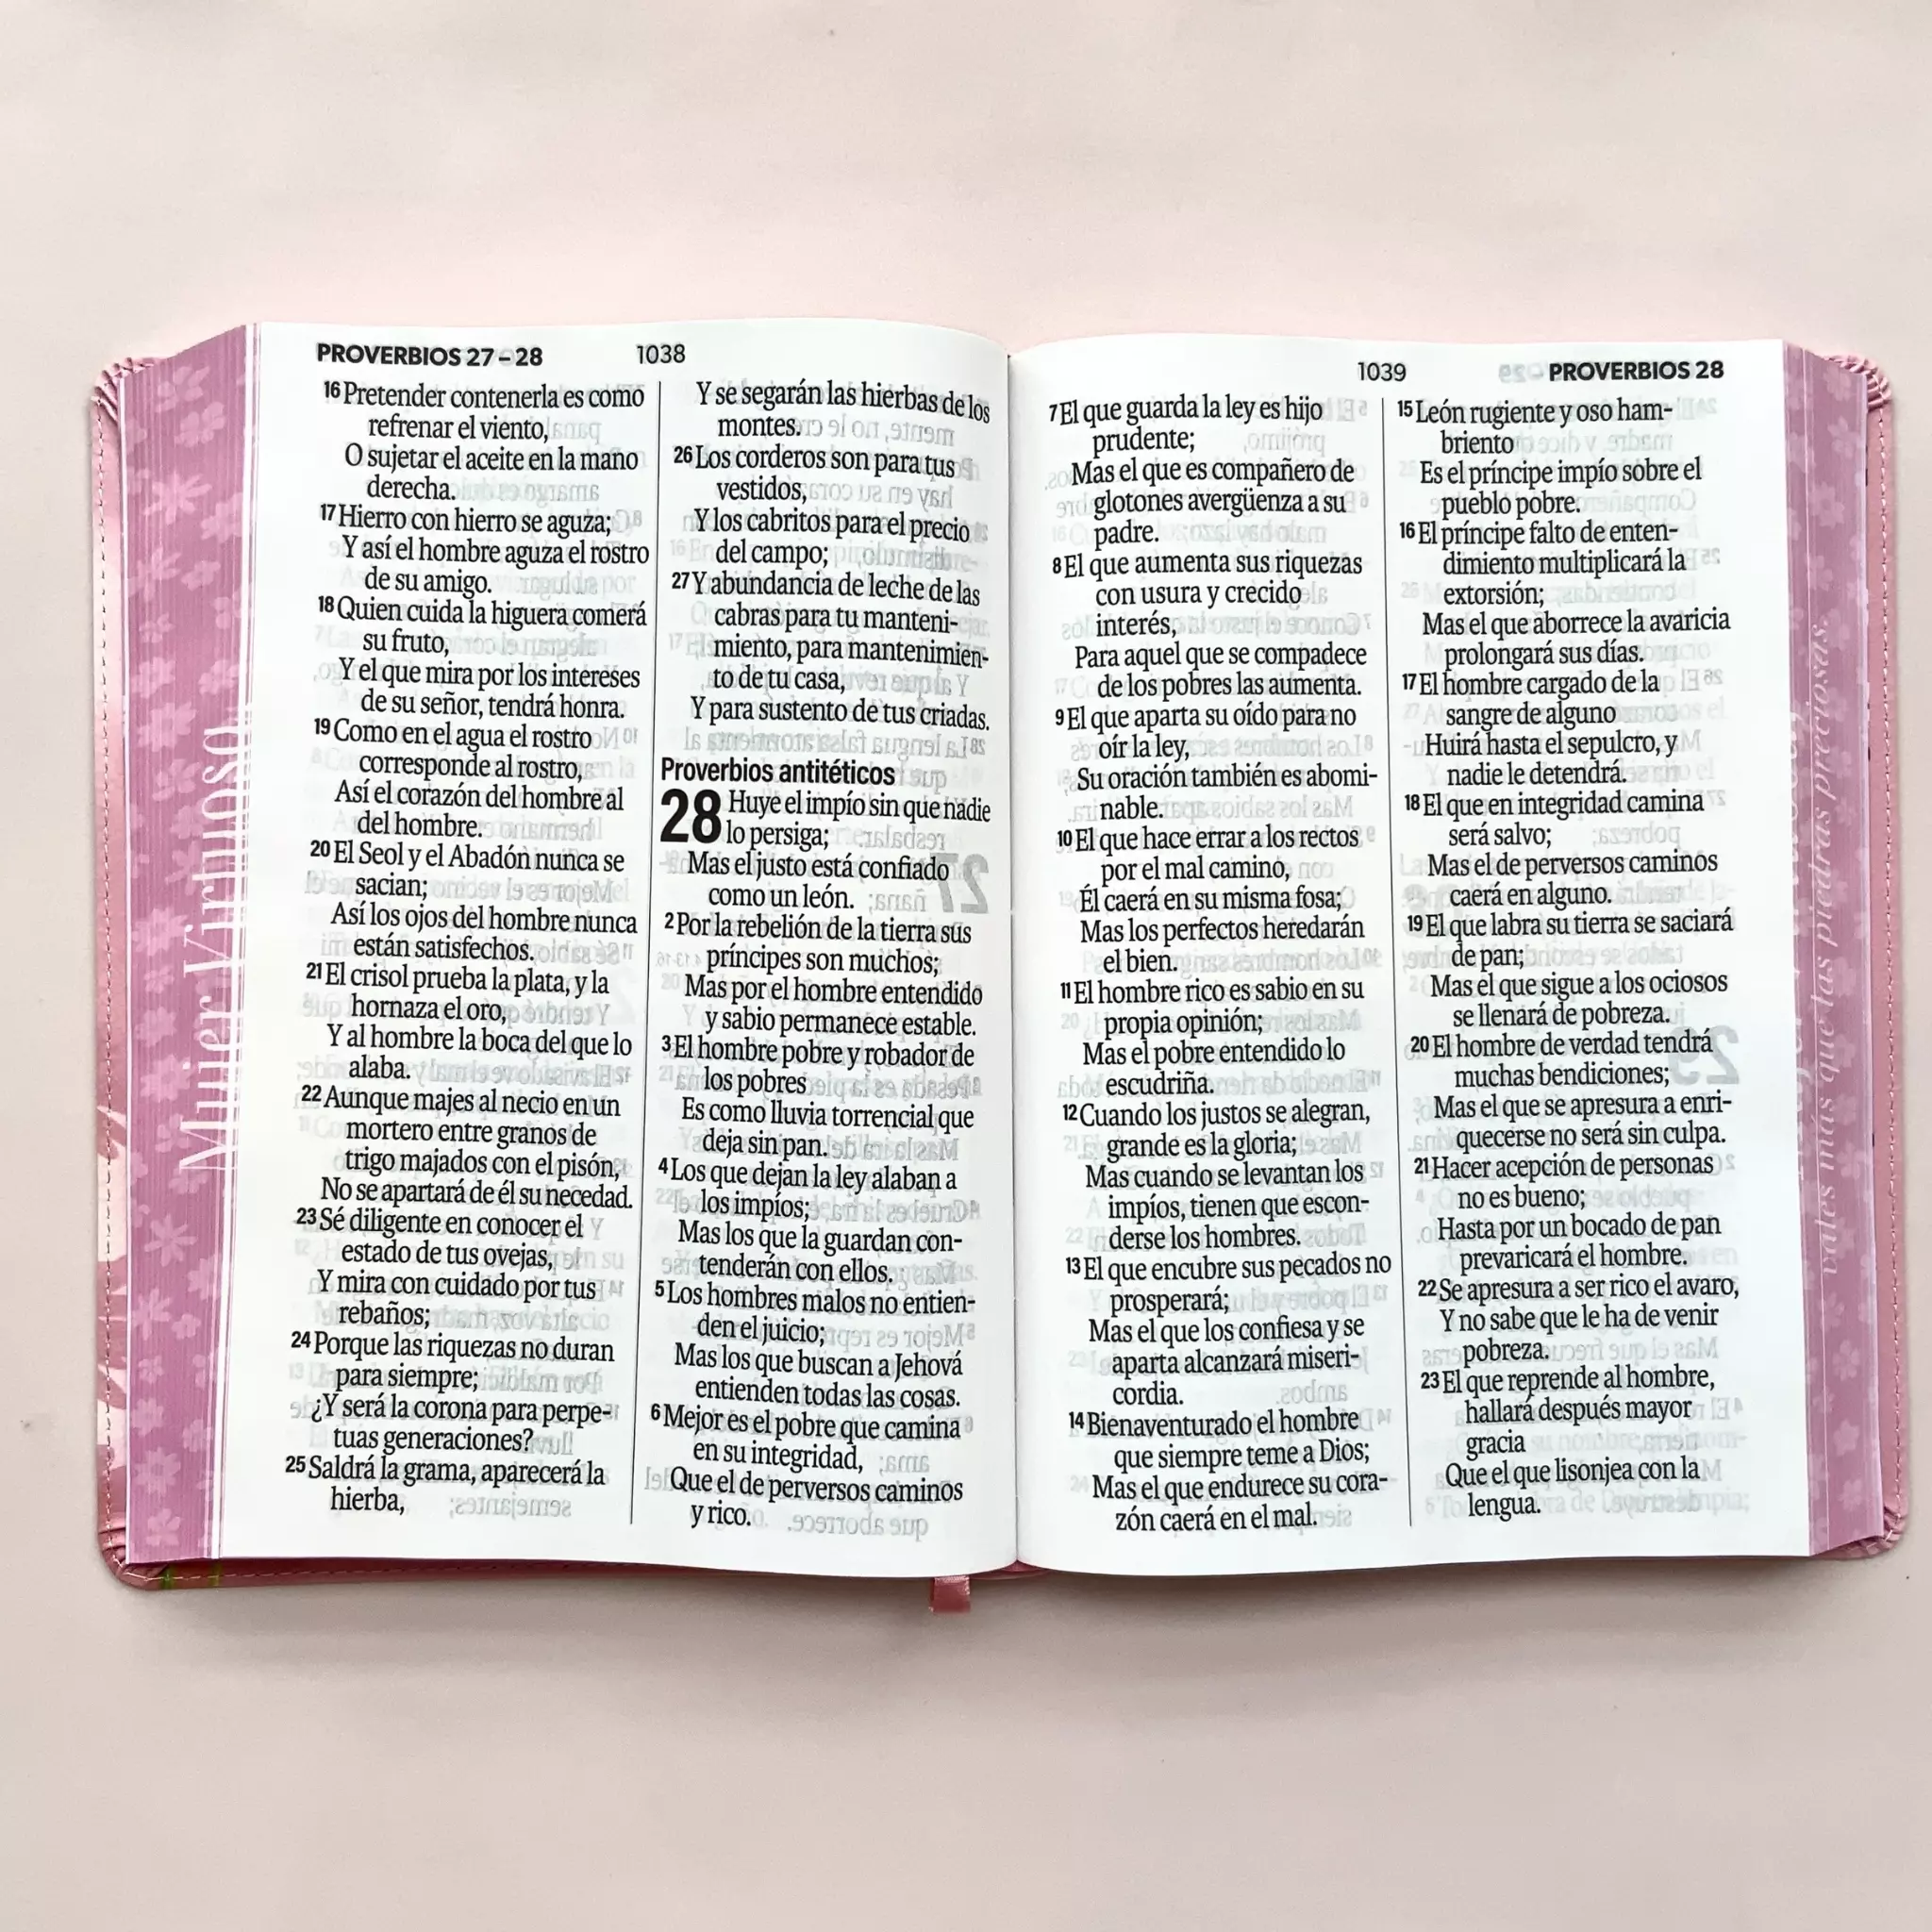 PROVERBIOS 27 – 28
1038
16 Pretender contenerla es como
refrenar el viento,
O sujetar el aceite en la mano
derecha.
17 Hierro con hierro se aguza;
Y así el hombre aguza el rostro
de su amigo.
18 Quien cuida la higuera comerá
su fruto,
Y el que mira por los intereses
de su señor, tendrá honra.
19 Como en el agua el rostro
corresponde al rostro,
Así el corazón del hombre al
del hombre.
20 El Seol y el Abadón nunca se
sacian;
Así los ojos del hombre nunca
están satisfechos.
21 El crisol prueba la plata, y la
hornaza el oro,
Y al hombre la boca del que lo
alaba.
22 Aunque majes al necio en un
mortero entre granos de
trigo majados con el pisón,
No se apartará de él su necedad.
23 Sé diligente en conocer el
estado de tus ovejas,
Y mira con cuidado por tus
rebaños;
24 Porque las riquezas no duran
para siempre;
¿Y será la corona para perpe-
tuas generaciones?
25 Saldrá la grama, aparecerá la
hierba,
Y se segarán las hierbas de los
montes.
26 Los corderos son para tus
vestidos,
Y los cabritos para el precio
del campo;
27 Y abundancia de leche de las
cabras para tu manteni-
miento, para mantenimien-
to de tu casa,
Y para sustento de tus criadas.
Proverbios antitéticos
28 Huye el impío sin que nadie
lo persiga;
Mas el justo está confiado
como un león.
2 Por la rebelión de la tierra sus
príncipes son muchos;
Mas por el hombre entendido
y sabio permanece estable.
3 El hombre pobre y robador de
los pobres
Es como lluvia torrencial que
deja sin pan.
4 Los que dejan la ley alaban a
los impíos;
Mas los que la guardan con-
tenderán con ellos.
5 Los hombres malos no entien-
den el juicio;
Mas los que buscan a Jehová
entienden todas las cosas.
6 Mejor es el pobre que camina
en su integridad,
Que el de perversos caminos
y rico.
1039
PROVERBIOS 28
7 El que guarda la ley es hijo
prudente;
Mas el que es compañero de
glotones avergüenza a su
padre.
8 El que aumenta sus riquezas
con usura y crecido
interés,
Para aquel que se compadece
de los pobres las aumenta.
9 El que aparta su oído para no
oír la ley,
Su oración también es abomi-
nable.
10 El que hace errar a los rectos
por el mal camino,
Él caerá en su misma fosa;
Mas los perfectos heredarán
el bien.
11 El hombre rico es sabio en su
propia opinión;
Mas el pobre entendido lo
escudriña.
12 Cuando los justos se alegran,
grande es la gloria;
Mas cuando se levantan los
impíos, tienen que escon-
derse los hombres.
13 El que encubre sus pecados no
prosperará;
Mas el que los confiesa y se
aparta alcanzará miseri-
cordia.
14 Bienaventurado el hombre
que siempre teme a Dios;
Mas el que endurece su cora-
zón caerá en el mal.
15 León rugiente y oso ham-
briento
Es el príncipe impío sobre el
pueblo pobre.
16 El príncipe falto de enten-
dimiento multiplicará la
extorsión;
Mas el que aborrece la avaricia
prolongará sus días.
17 El hombre cargado de la
sangre de alguno
Huirá hasta el sepulcro, y
nadie le detendrá.
18 El que en integridad camina
será salvo;
Mas el de perversos caminos
caerá en alguno.
19 El que labra su tierra se saciará
de pan;
Mas el que sigue a los ociosos
se llenará de pobreza.
20 El hombre de verdad tendrá
muchas bendiciones;
Mas el que se apresura a enri-
quecerse no será sin culpa.
21 Hacer acepción de personas
no es bueno;
Hasta por un bocado de pan
prevaricará el hombre.
22 Se apresura a ser rico el avaro,
Y no sabe que le ha de venir
pobreza.
23 El que reprende al hombre,
hallará después mayor
gracia
Que el que lisonjea con la
lengua.
Mujer Virtuosa
vales más que las piedras preciosas.